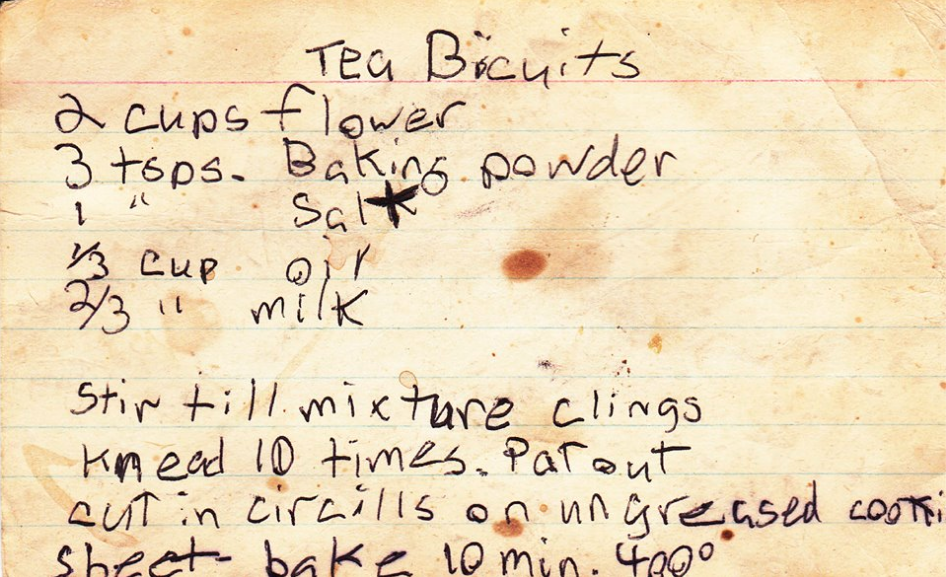 Tea Bicuits
2 cups flower
3 tsps. Baking powder
1 " Salt
1/3 cup oil
2/3 " milk
Stir till mixture clings
Knead 10 times. Pat out
cut in circills on ungreased cooki
sheet bake 10 min. 400°